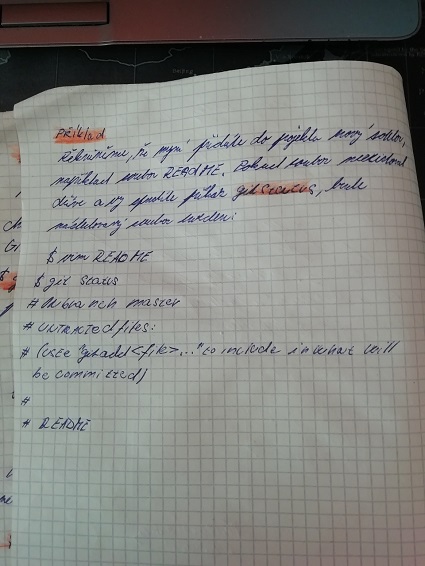 Příklad
Řekněme, že nyní přidáte do projektu nový soubor,
například soubor README. Pokud soubor neexistoval
dříve a vy spustíte příkaz git status, bude
nesledovaný soubor uveden:
$ vim README
$ git status
# On branch master
# untracted files:
# (use "git add <file>..." to include in what will
be committed)
#
# README